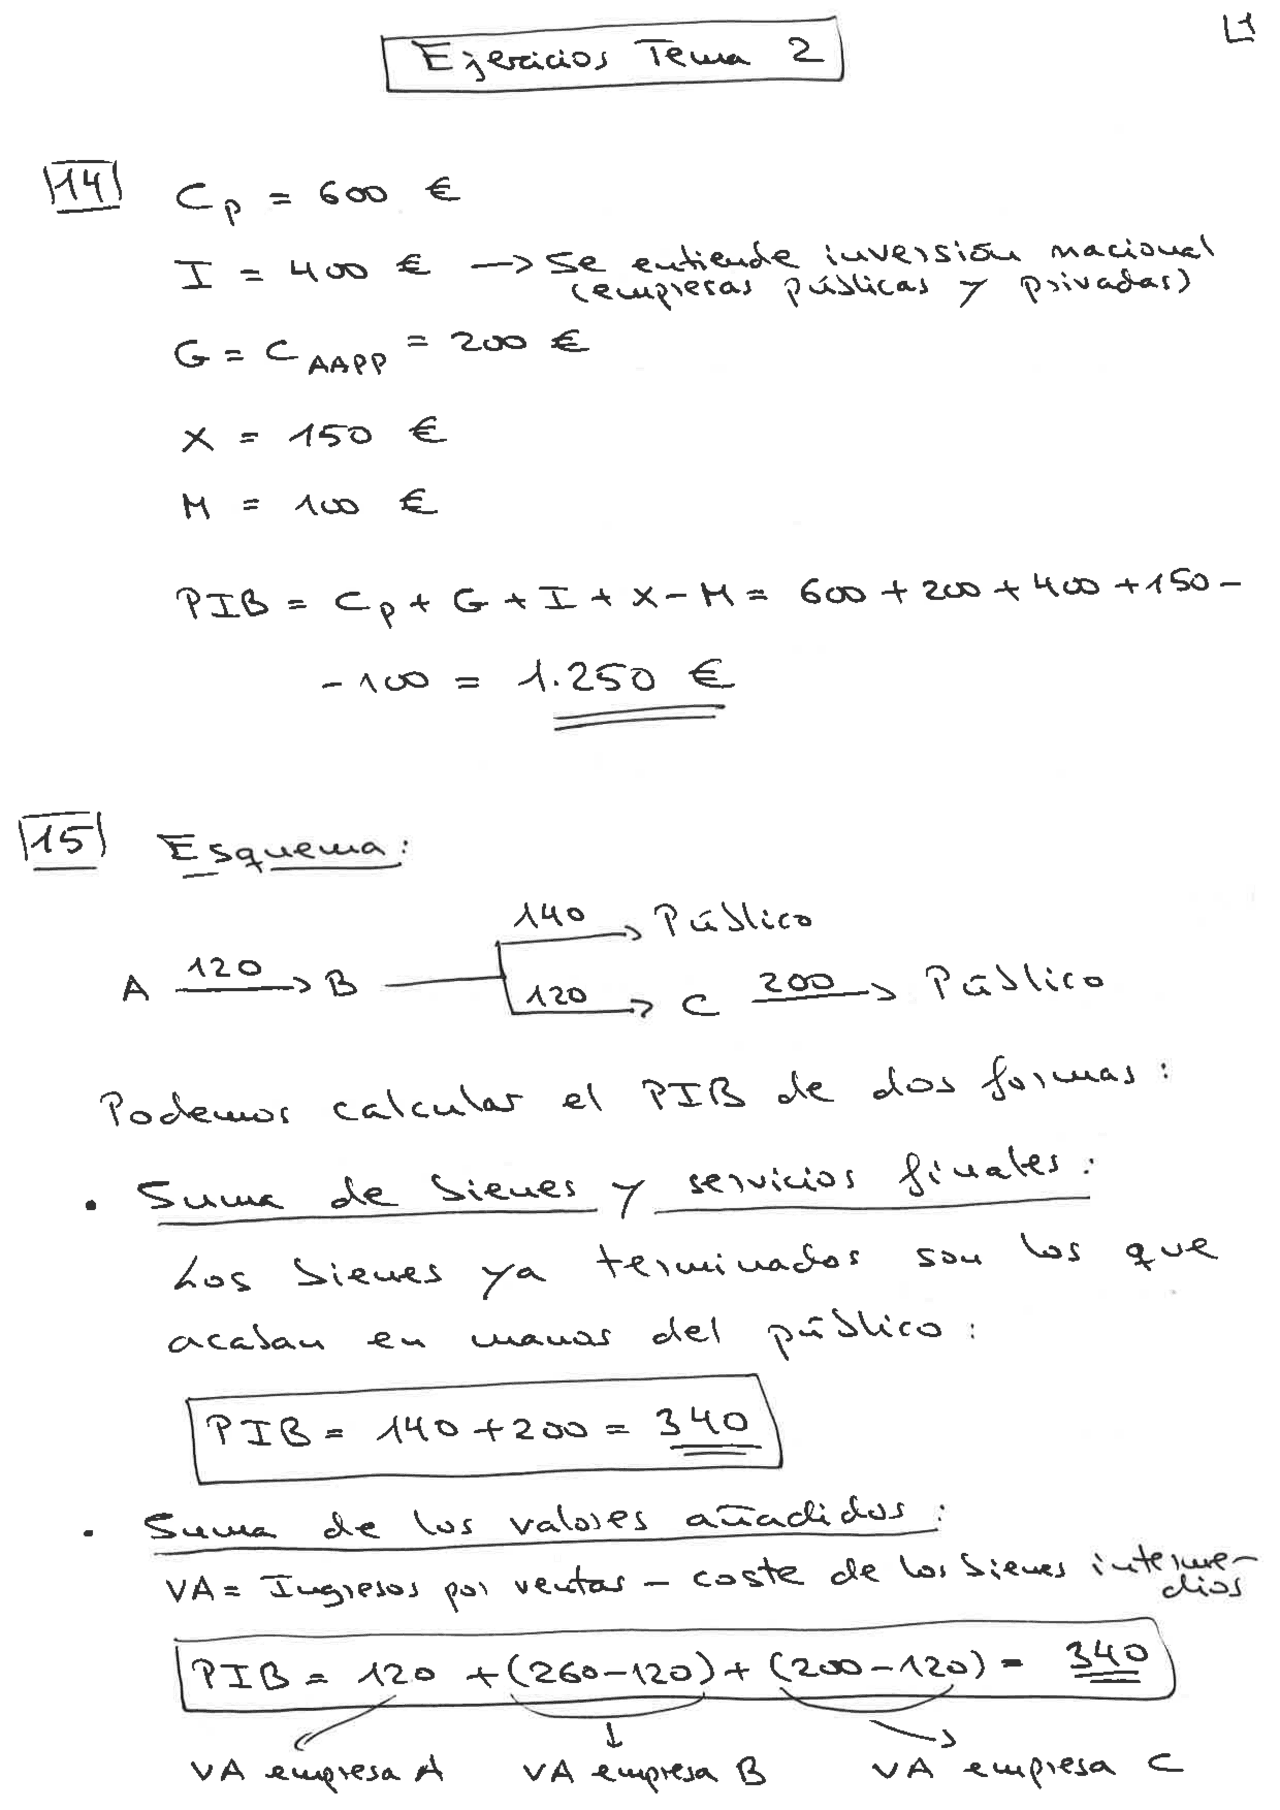 1
Ejercicios Tema 2
14 Cp = 600 €
I = 400 € → Se entiende inversión nacional
(empresas públicas y privadas)
G = C AAPP = 200 €
X = 150 €
M = 100 €
PIB = Cp + G + I + X - M = 600 + 200 + 400 + 150 -
- 100 = 1.250 €
15 Esquema:
140 → Público
A 120 → B
120 → C 200 → Público
Podemos calcular el PIB de dos formas:
• Suma de bienes y servicios finales:
Los bienes ya terminados son los que
acaban en manos del público:
PIB = 140 + 200 = 340
• Suma de los valores añadidos:
VA = Ingresos por ventas - coste de los bienes interme-
dios
PIB = 120 + (260-120) + (200-120) = 340
VA empresa A VA empresa B VA empresa C